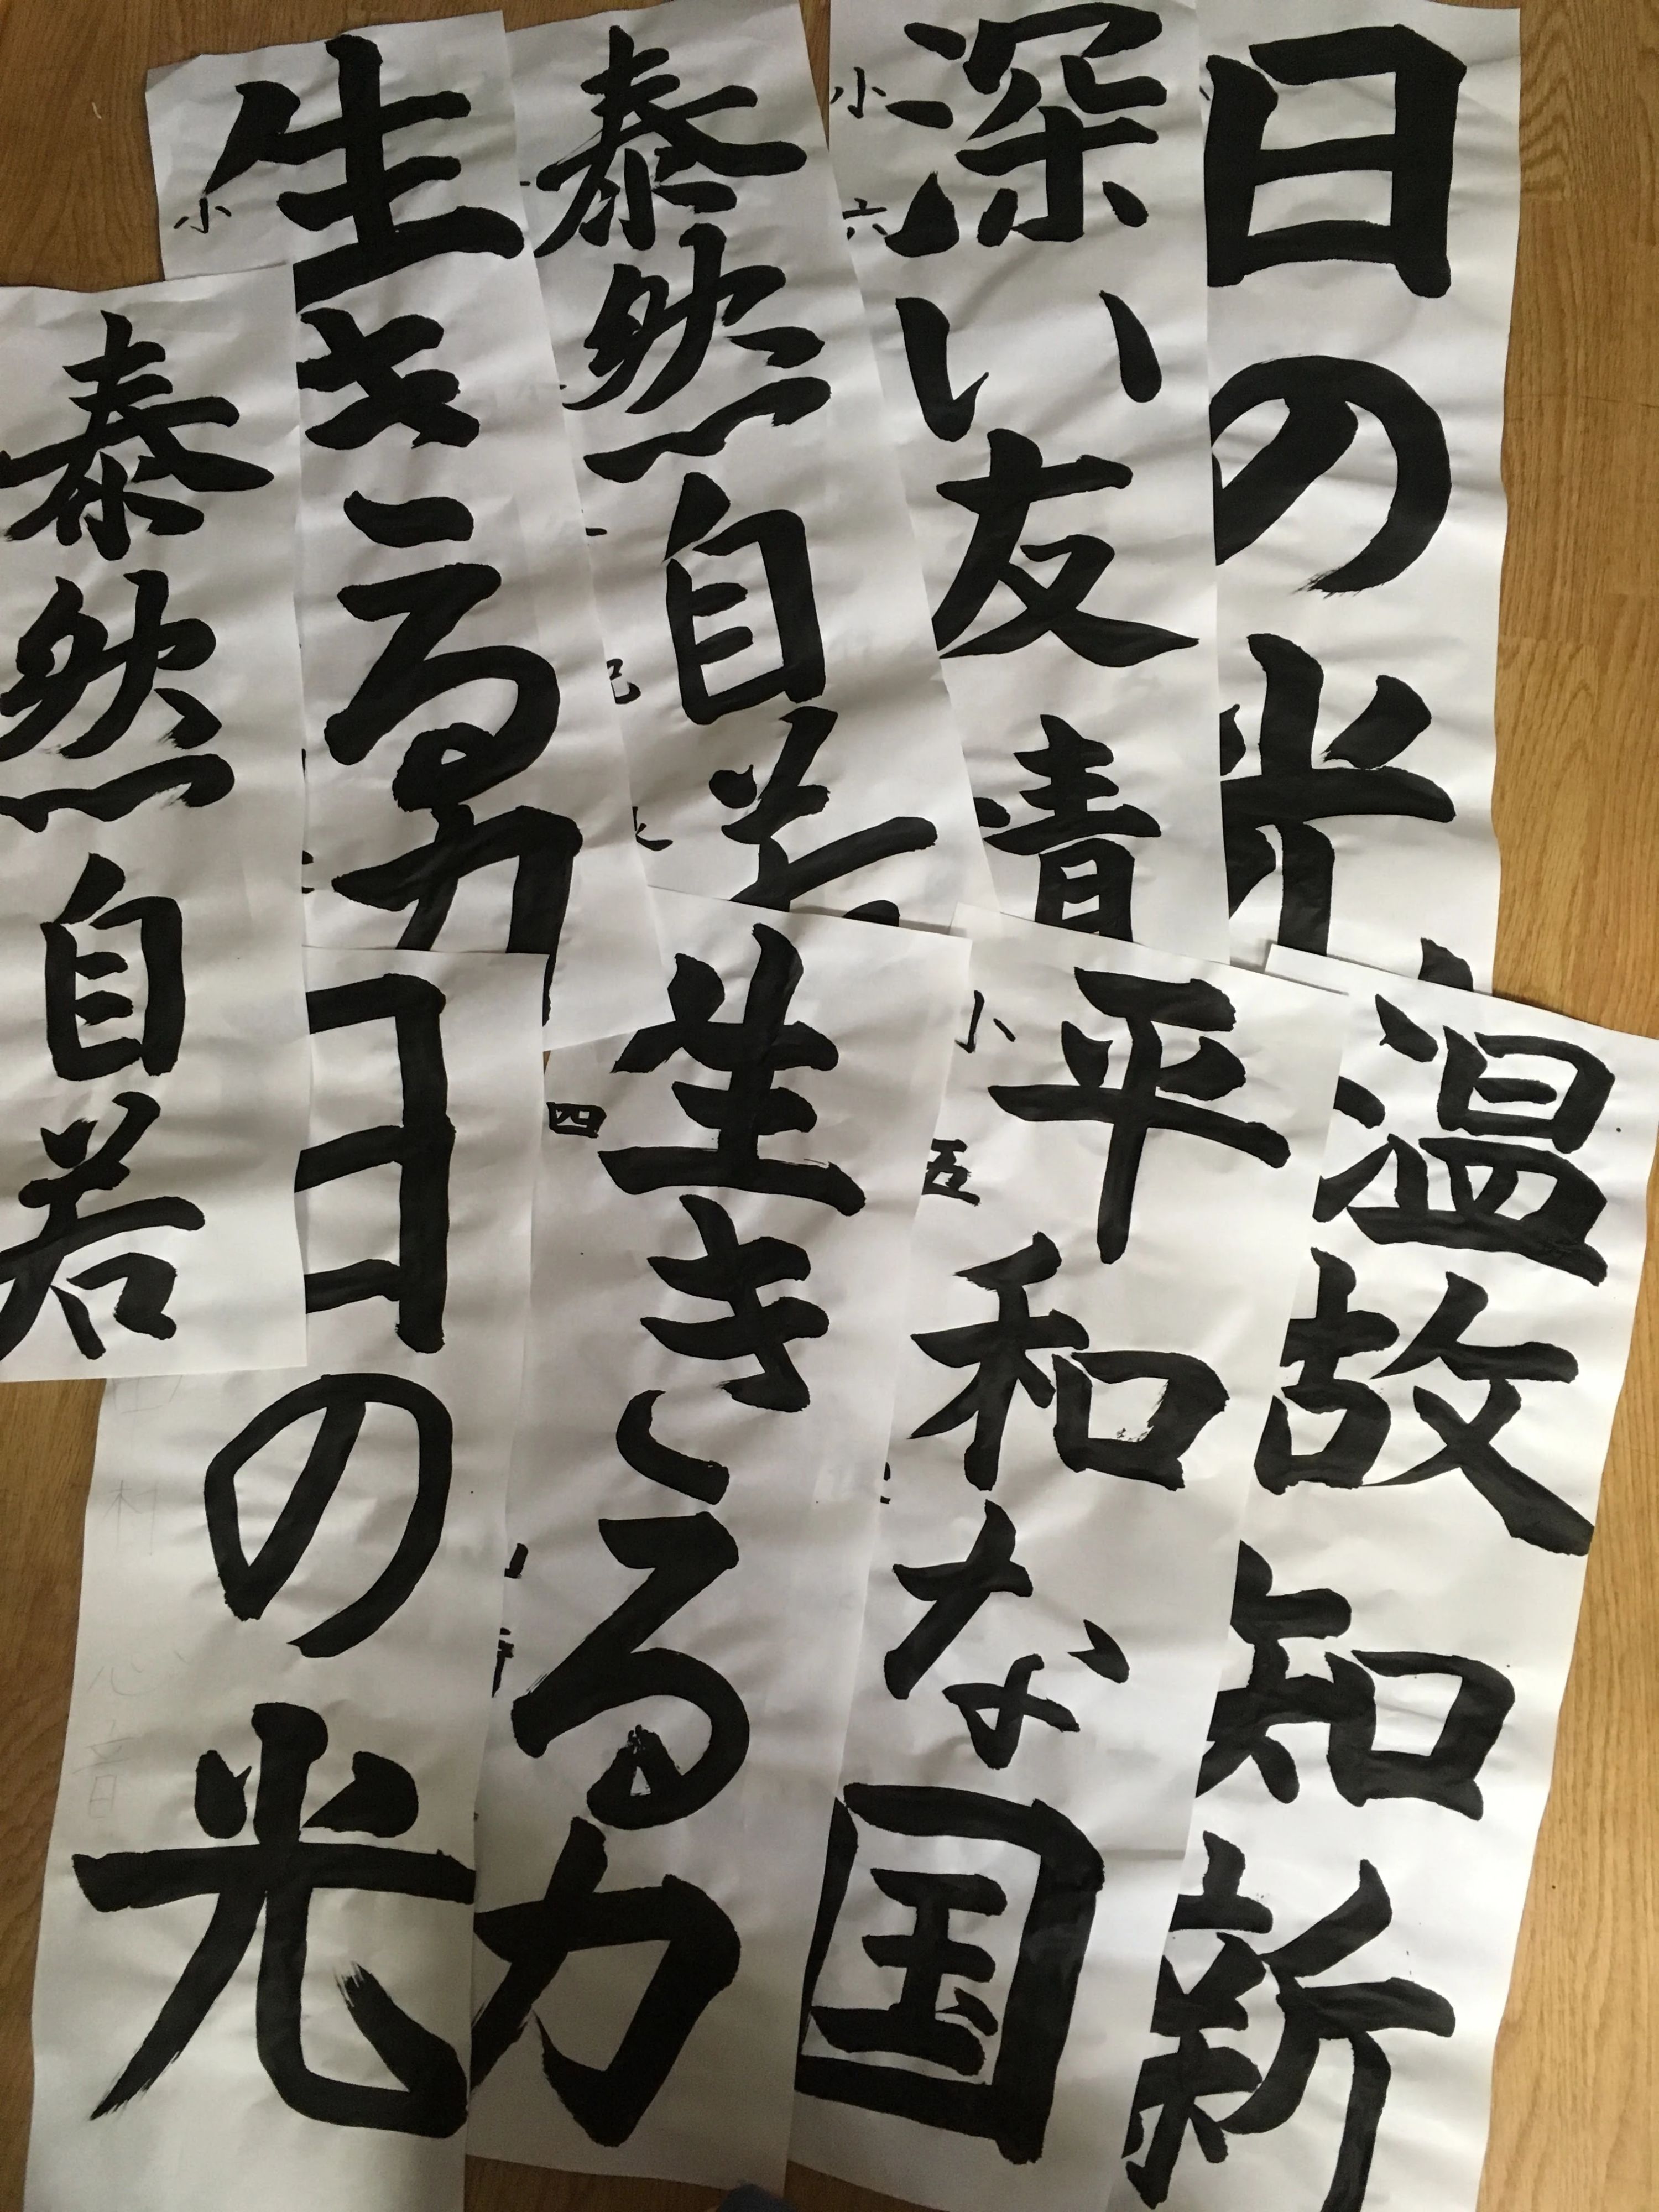 日の光
深い友青
小六
泰然自若
生きる力
小
泰然自若
温故知新
平和な国
小五
生きる力
四
日の光